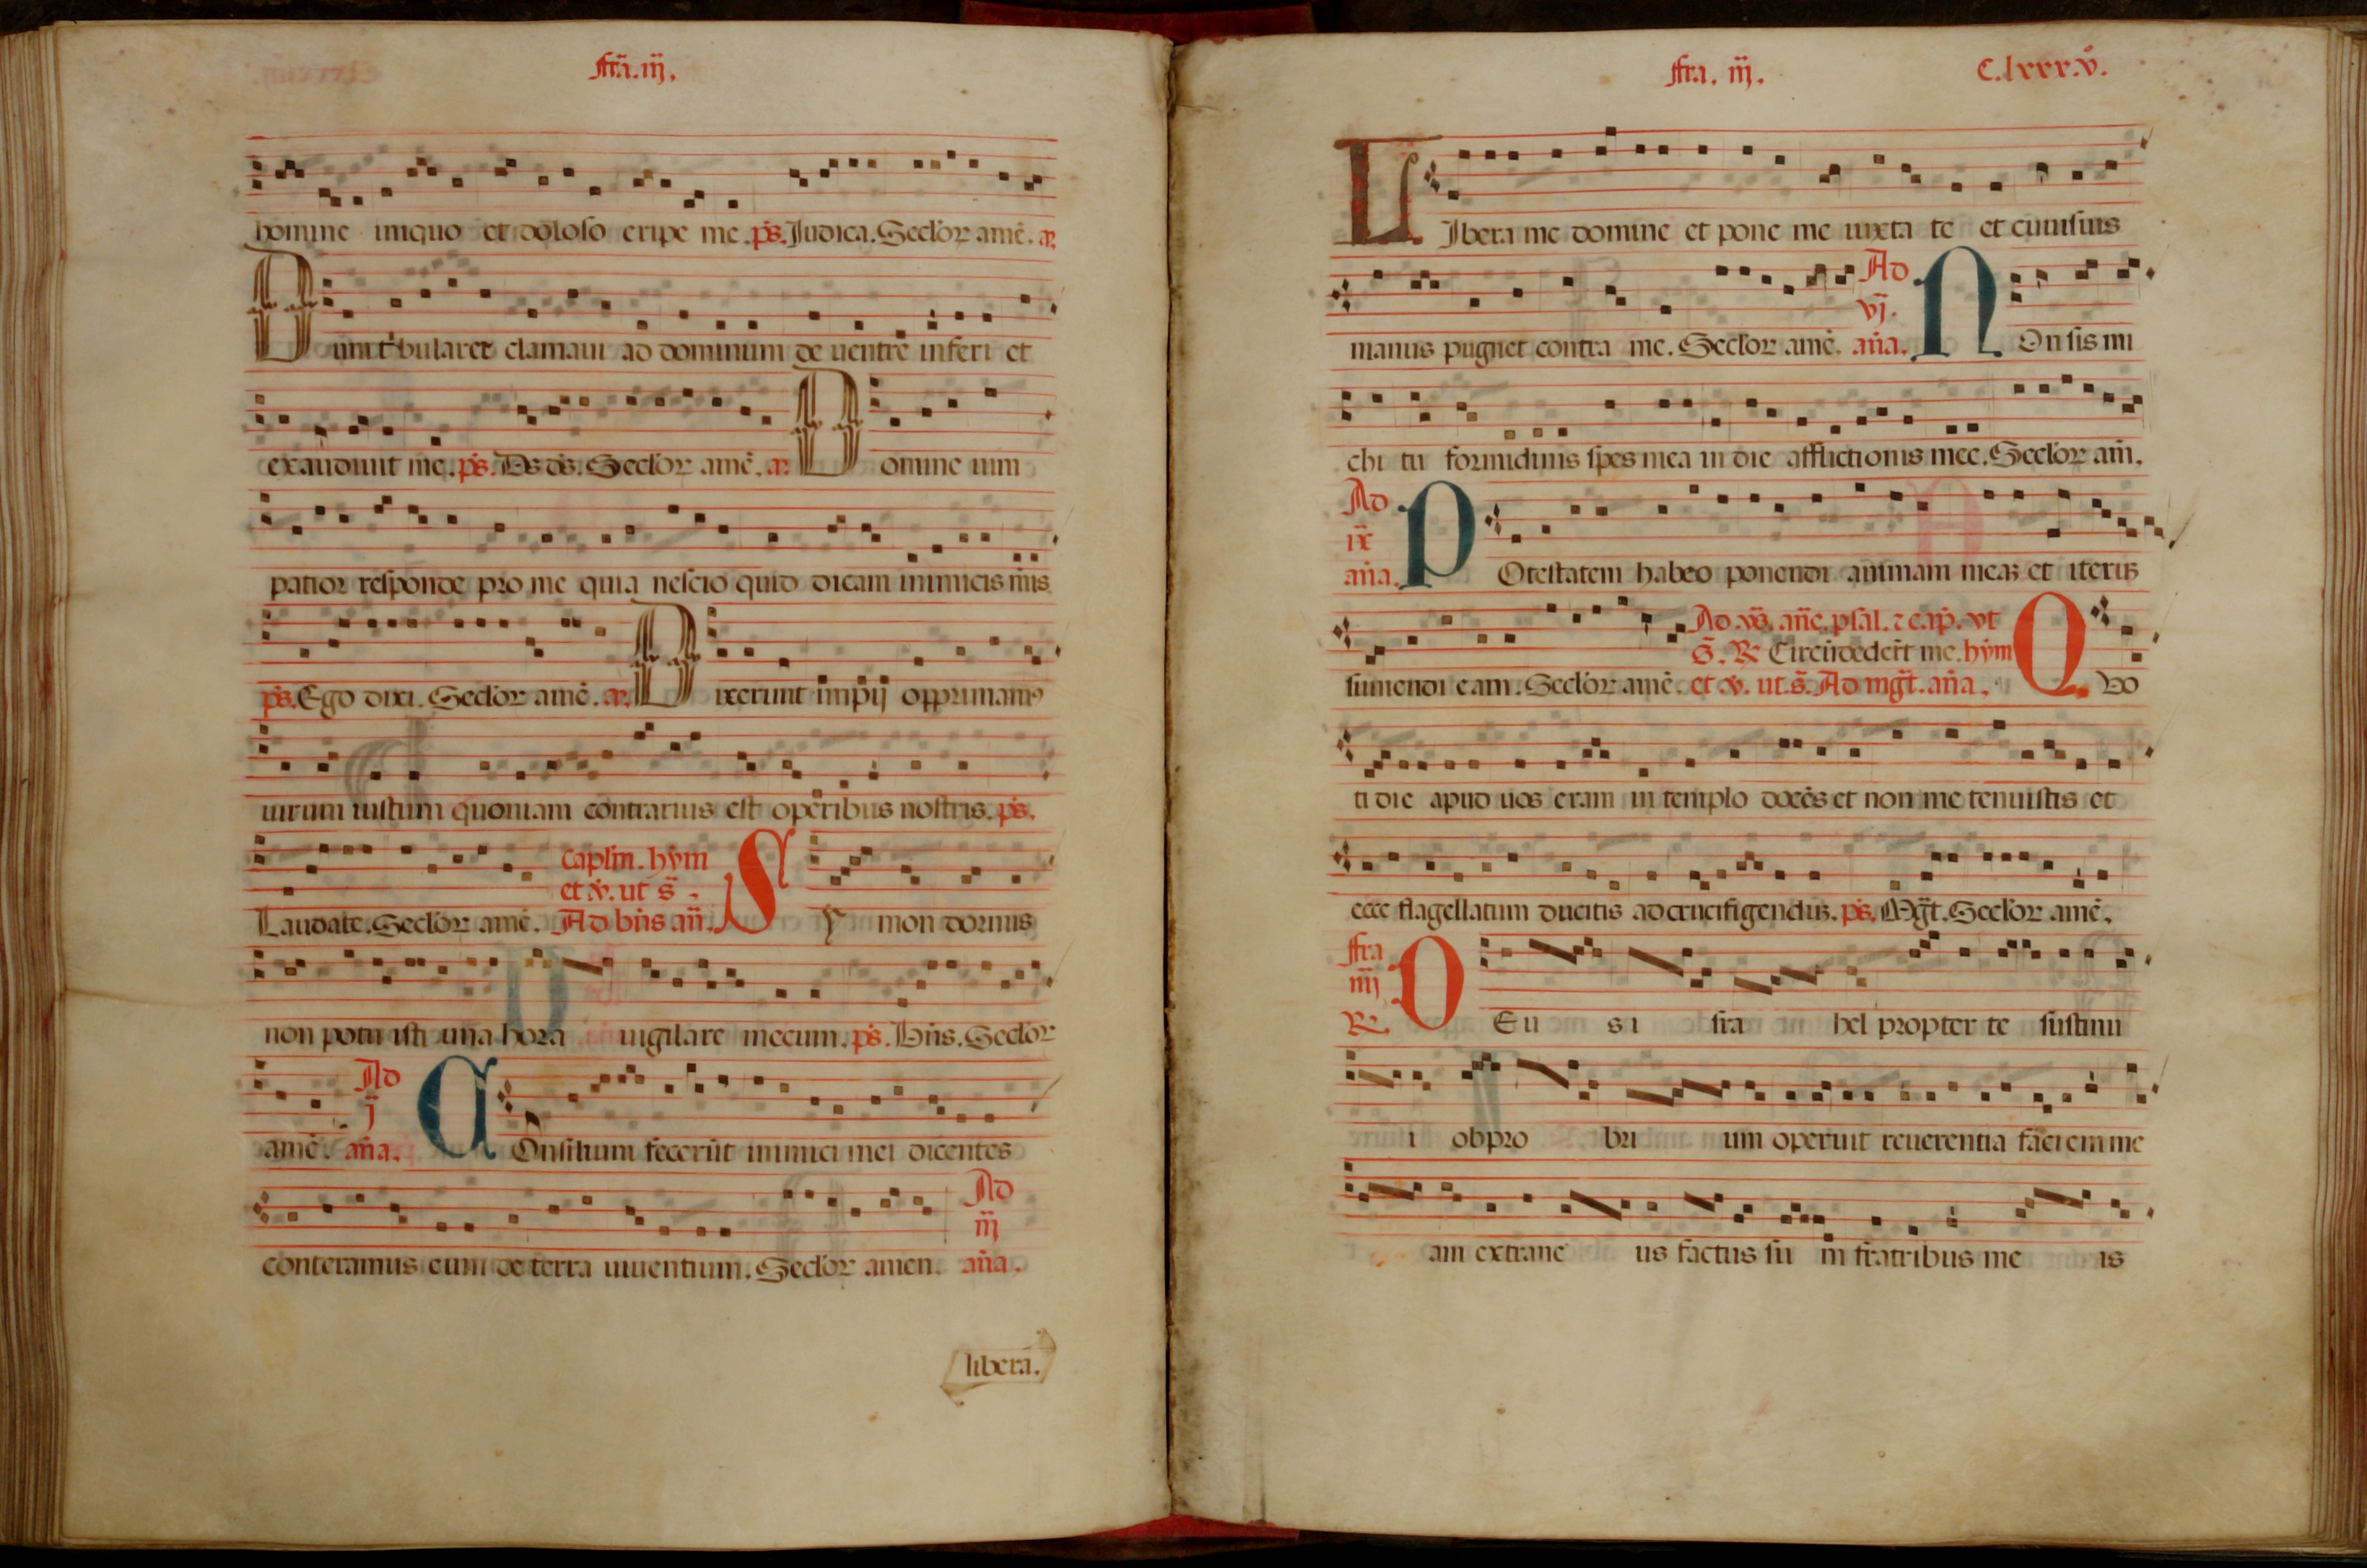 ffrã.iij.
homine iniquo et doloso eripe me. ps. Judica. Seclor amē. a.
Dum tribularer clamaui ad dominum de uentre inferi et
exaudiuit me. ps. Ds ds. Seclor amē. a. Domine uim
patior responde pro me quia nescio quid dicam inimicis mis
ps. Ego dixi. Seclor amē. a. Dixerunt impij opprimam9
uirum iustum quoniam contrarius est operibus nostris. ps.
caplm. hym
et v. ut s.
Laudate. Seclor amē. Ad bn̄s an̄. Symon dormis
non potuisti una hora uigilare mecum. ps. Bn̄s. Seclor
Ad
j
amē. an̄a. COnsilium fecerūt inimici mei dicentes
Ad
iij
conteramus eum de terra uiuentium. Seclor amen. an̄a.
libera.
ffra. iij. C.lxxx.v.
LIbera me domine et pone me iuxta te et cuiusuis
Ad
vj.
manus pugnet contra me. Seclor amē. an̄a. NOn sis mi
chi tu formidinis spes mea in die afflictionis mee. Seclor am̄.
Ad
ix
an̄a. POtestatem habeo ponendi animam meaʒ et iteruʒ
Ad vs. an̄e. psal. ⁊ cap. vt
s̄. R Circūdedert me. hym
sumendi eam. Seclor amē. et v. ut. s̄. Ad mgt̄. an̄a. QUo
ti die apud uos eram in templo docēs et non me tenuistis et
ecce flagellatum ducitis ad crucifigenduʒ. ps. Mgt̄. Seclor amē.
ffra
iiij
R DEus isrâhel propter te sustinu
i obprobrium operuit reuerentia faciem me
am extraneus factus sum fratribus meis